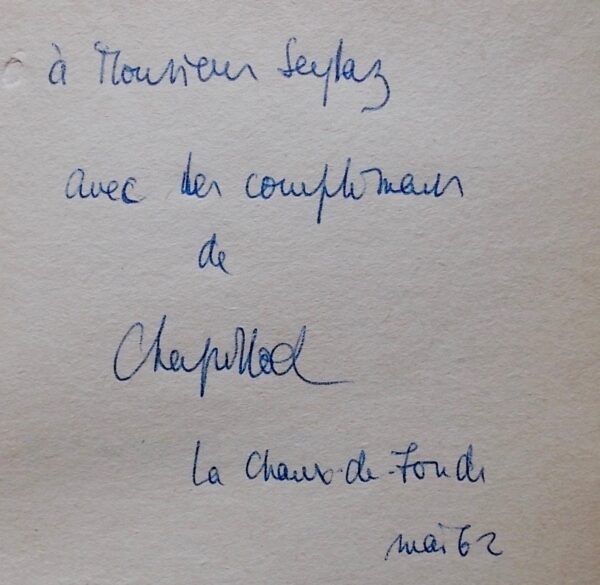 à Monsieur Seylaz
avec les compliments
de
Chapallaz
La Chaux-de-Fonds
mai 62